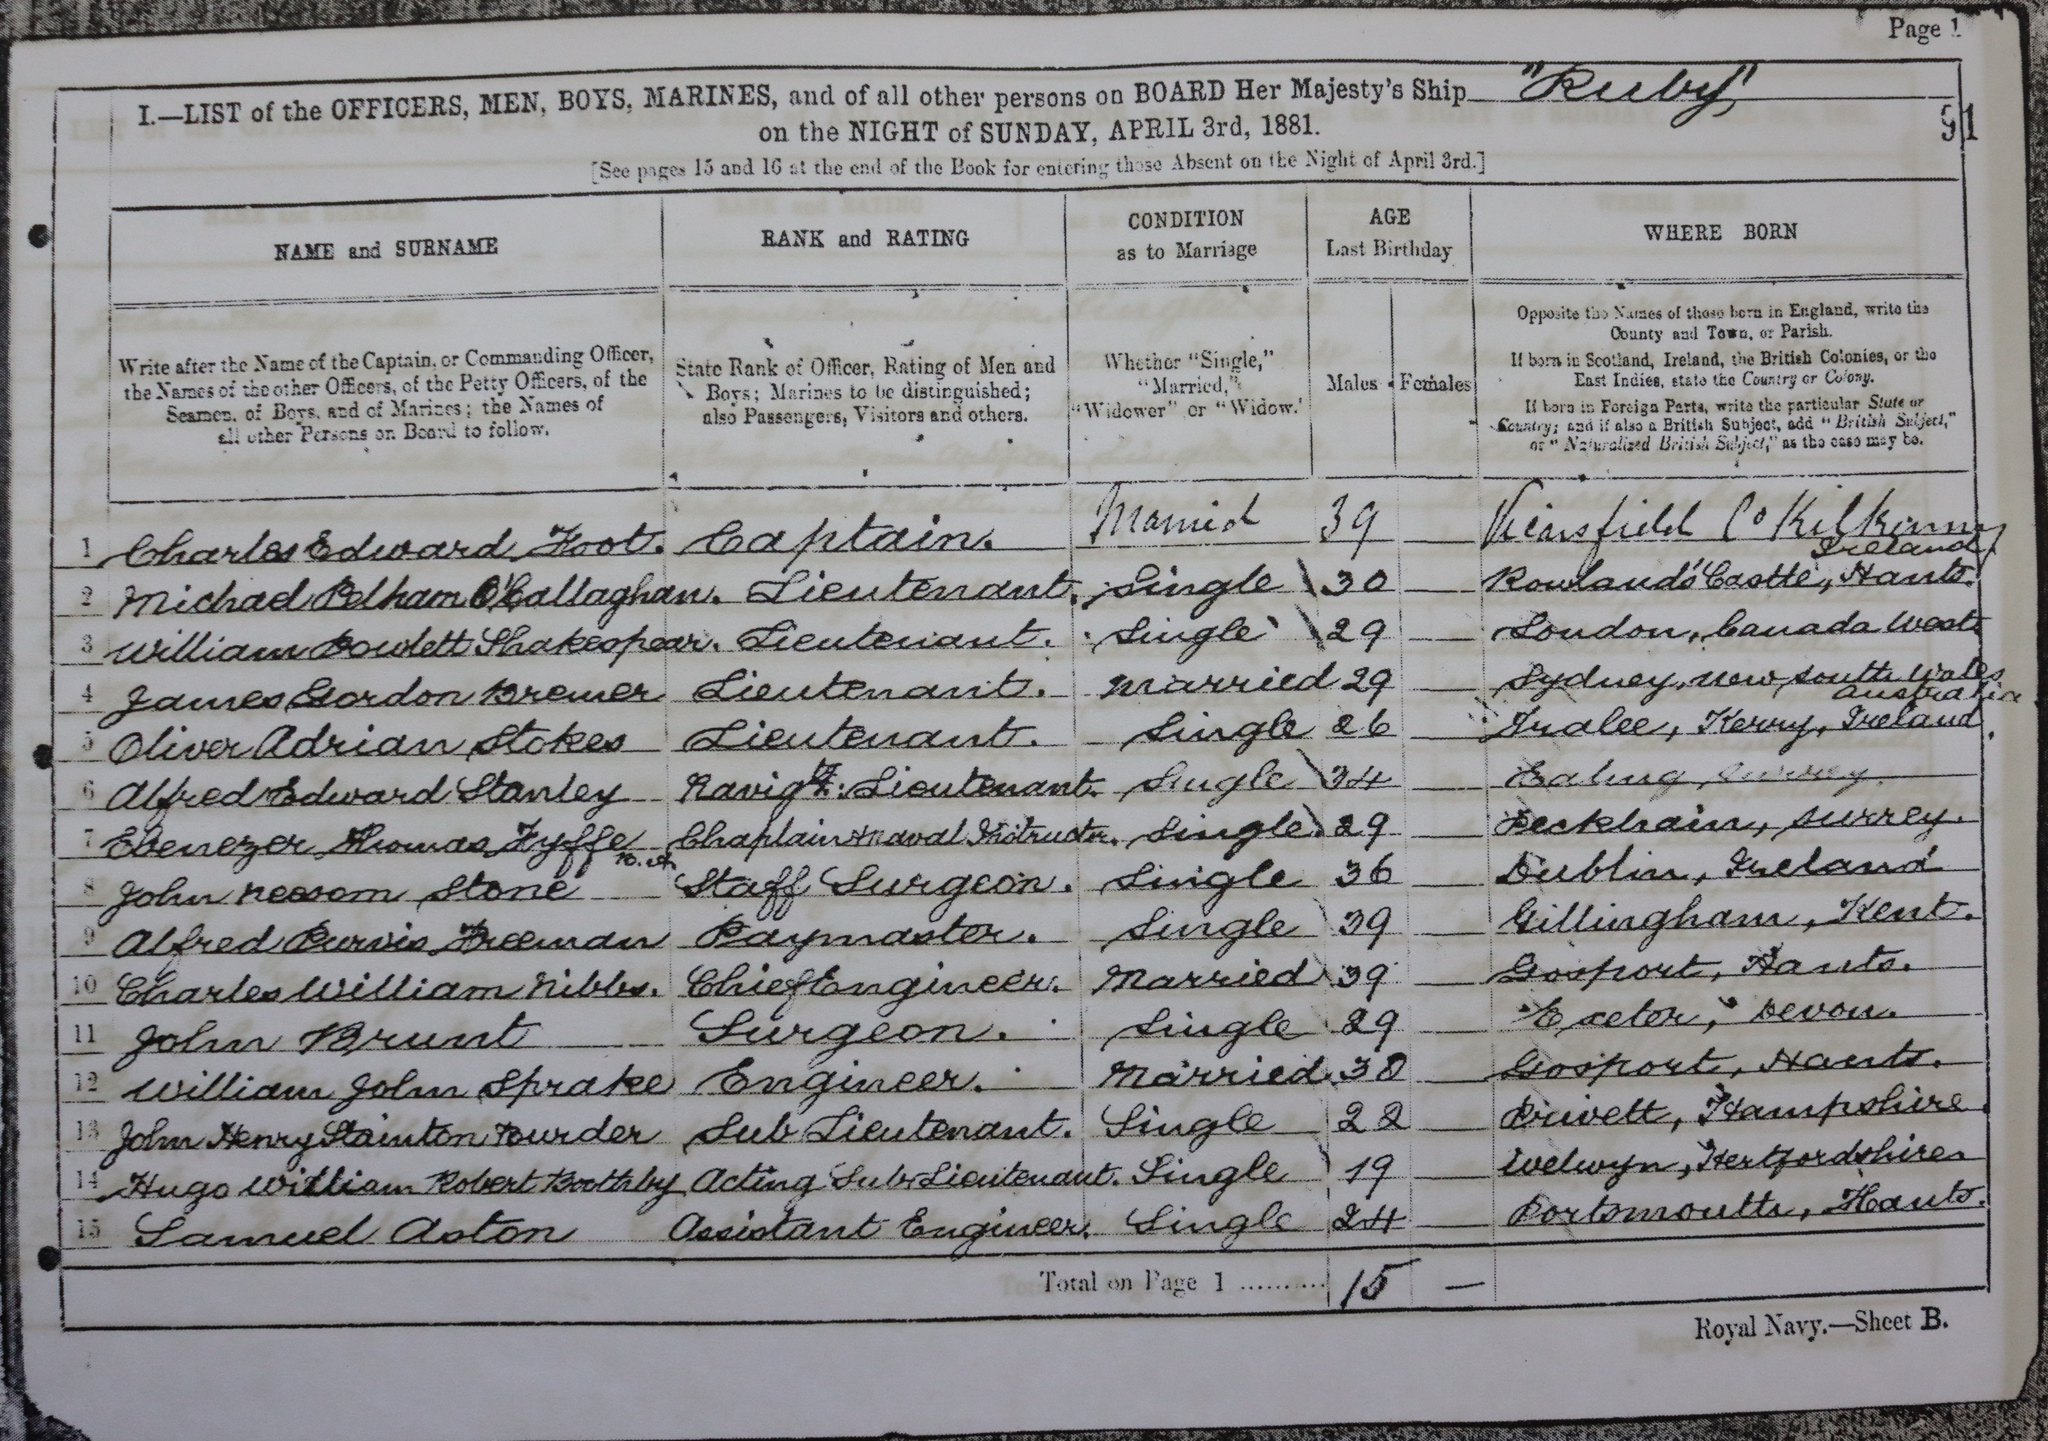 Page 1
I.—LIST of the OFFICERS, MEN, BOYS, MARINES, and of all other persons on BOARD Her Majesty's Ship "Ruby"
on the NIGHT of SUNDAY, APRIL 3rd, 1881.
91
[See pages 15 and 16 at the end of the Book for entering those Absent on the Night of April 3rd.]
NAME and SURNAME RANK and RATING CONDITION as to Marriage AGE Last Birthday WHERE BORN
Write after the Name of the Captain, or Commanding Officer,
the Names of the other Officers, of the Petty Officers, of the
Seamen, of Boys, and of Marines; the Names of
all other Persons on Board to follow.
State Rank of Officer, Rating of Men and
Boys; Marines to be distinguished;
also Passengers, Visitors and others.
Whether "Single,"
"Married,"
"Widower" or "Widow."
Males Females
Opposite the Names of those born in England, write the
County and Town, or Parish.
If born in Scotland, Ireland, the British Colonies, or the
East Indies, state the Country or Colony.
If born in Foreign Parts, write the particular State or
Country; and if also a British Subject, add "British Subject,"
or "Naturalized British Subject," as the case may be.
1 Charles Edward Foot. Captain. Married 39 Co Kilkenny Ireland
2 Michael Pelham O'Callaghan. Lieutenant. Single 30 Rowland's Castle, Hants.
3 William Powlett Shakespear. Lieutenant. Single 29 London, Canada West.
4 James Gordon Bremer Lieutenant. Married 29 Sydney, New South Wales Australia
5 Oliver Adrian Stokes Lieutenant. Single 26 Tralee, Kerry, Ireland.
6 Alfred Edward Stanley Navigg: Lieutenant. Single 34 Ealing, Surrey.
7 Ebenezer Thomas Fyffe Chaplain & Naval Instructor. Single 29 Peckham, Surrey.
8 John Stone Staff Surgeon. Single 36 Dublin, Ireland
9 Alfred Purvis Freeman Paymaster. Single 39 Gillingham, Kent.
10 Charles William Nibbs. Chief Engineer. Married 39 Gosport, Hants.
11 John Brunt Surgeon. Single 29 Exeter, Devon.
12 William John Sprake Engineer. Married 30 Gosport, Hants.
13 John Henry Stainton Sub Lieutenant. Single 22 Privett, Hampshire.
14 Hugo William Robert Boothby Acting Sub Lieutenant. Single 19 Welwyn, Hertfordshire
15 Samuel Aston Assistant Engineer. Single 24 Portsmouth, Hants.
Total on Page 1 .......... 15 —
Royal Navy.—Sheet B.